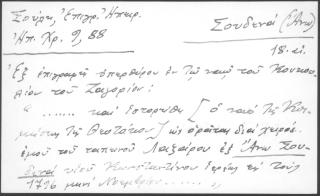 Σούρλα, Ἐπιγρ. Ἠπειρ.
Ἠπ. Χρ. 9, 88
Σουδενά (Ἄνω)
18. αι.
Ἐξ ἐπιγραφῆς ὑπερθύρου ἐν τῷ ναῷ τοῦ Κουκου-
λίου τοῦ Ζαγορίου:
"....... καί ἱστορήθη [ὁ ναός τῆς Κοι-
μήσεως τῆς Θεοτόκου] ὡς ὁρᾶται διά χειρός
ἐμοῦ τοῦ ταπεινοῦ Λαζάρου ἐξ Ἄνω Σου-
δενά υἱοῦ Κωνσταντίνου εἰς τούς
1796 Νοεμβρίου ...... "